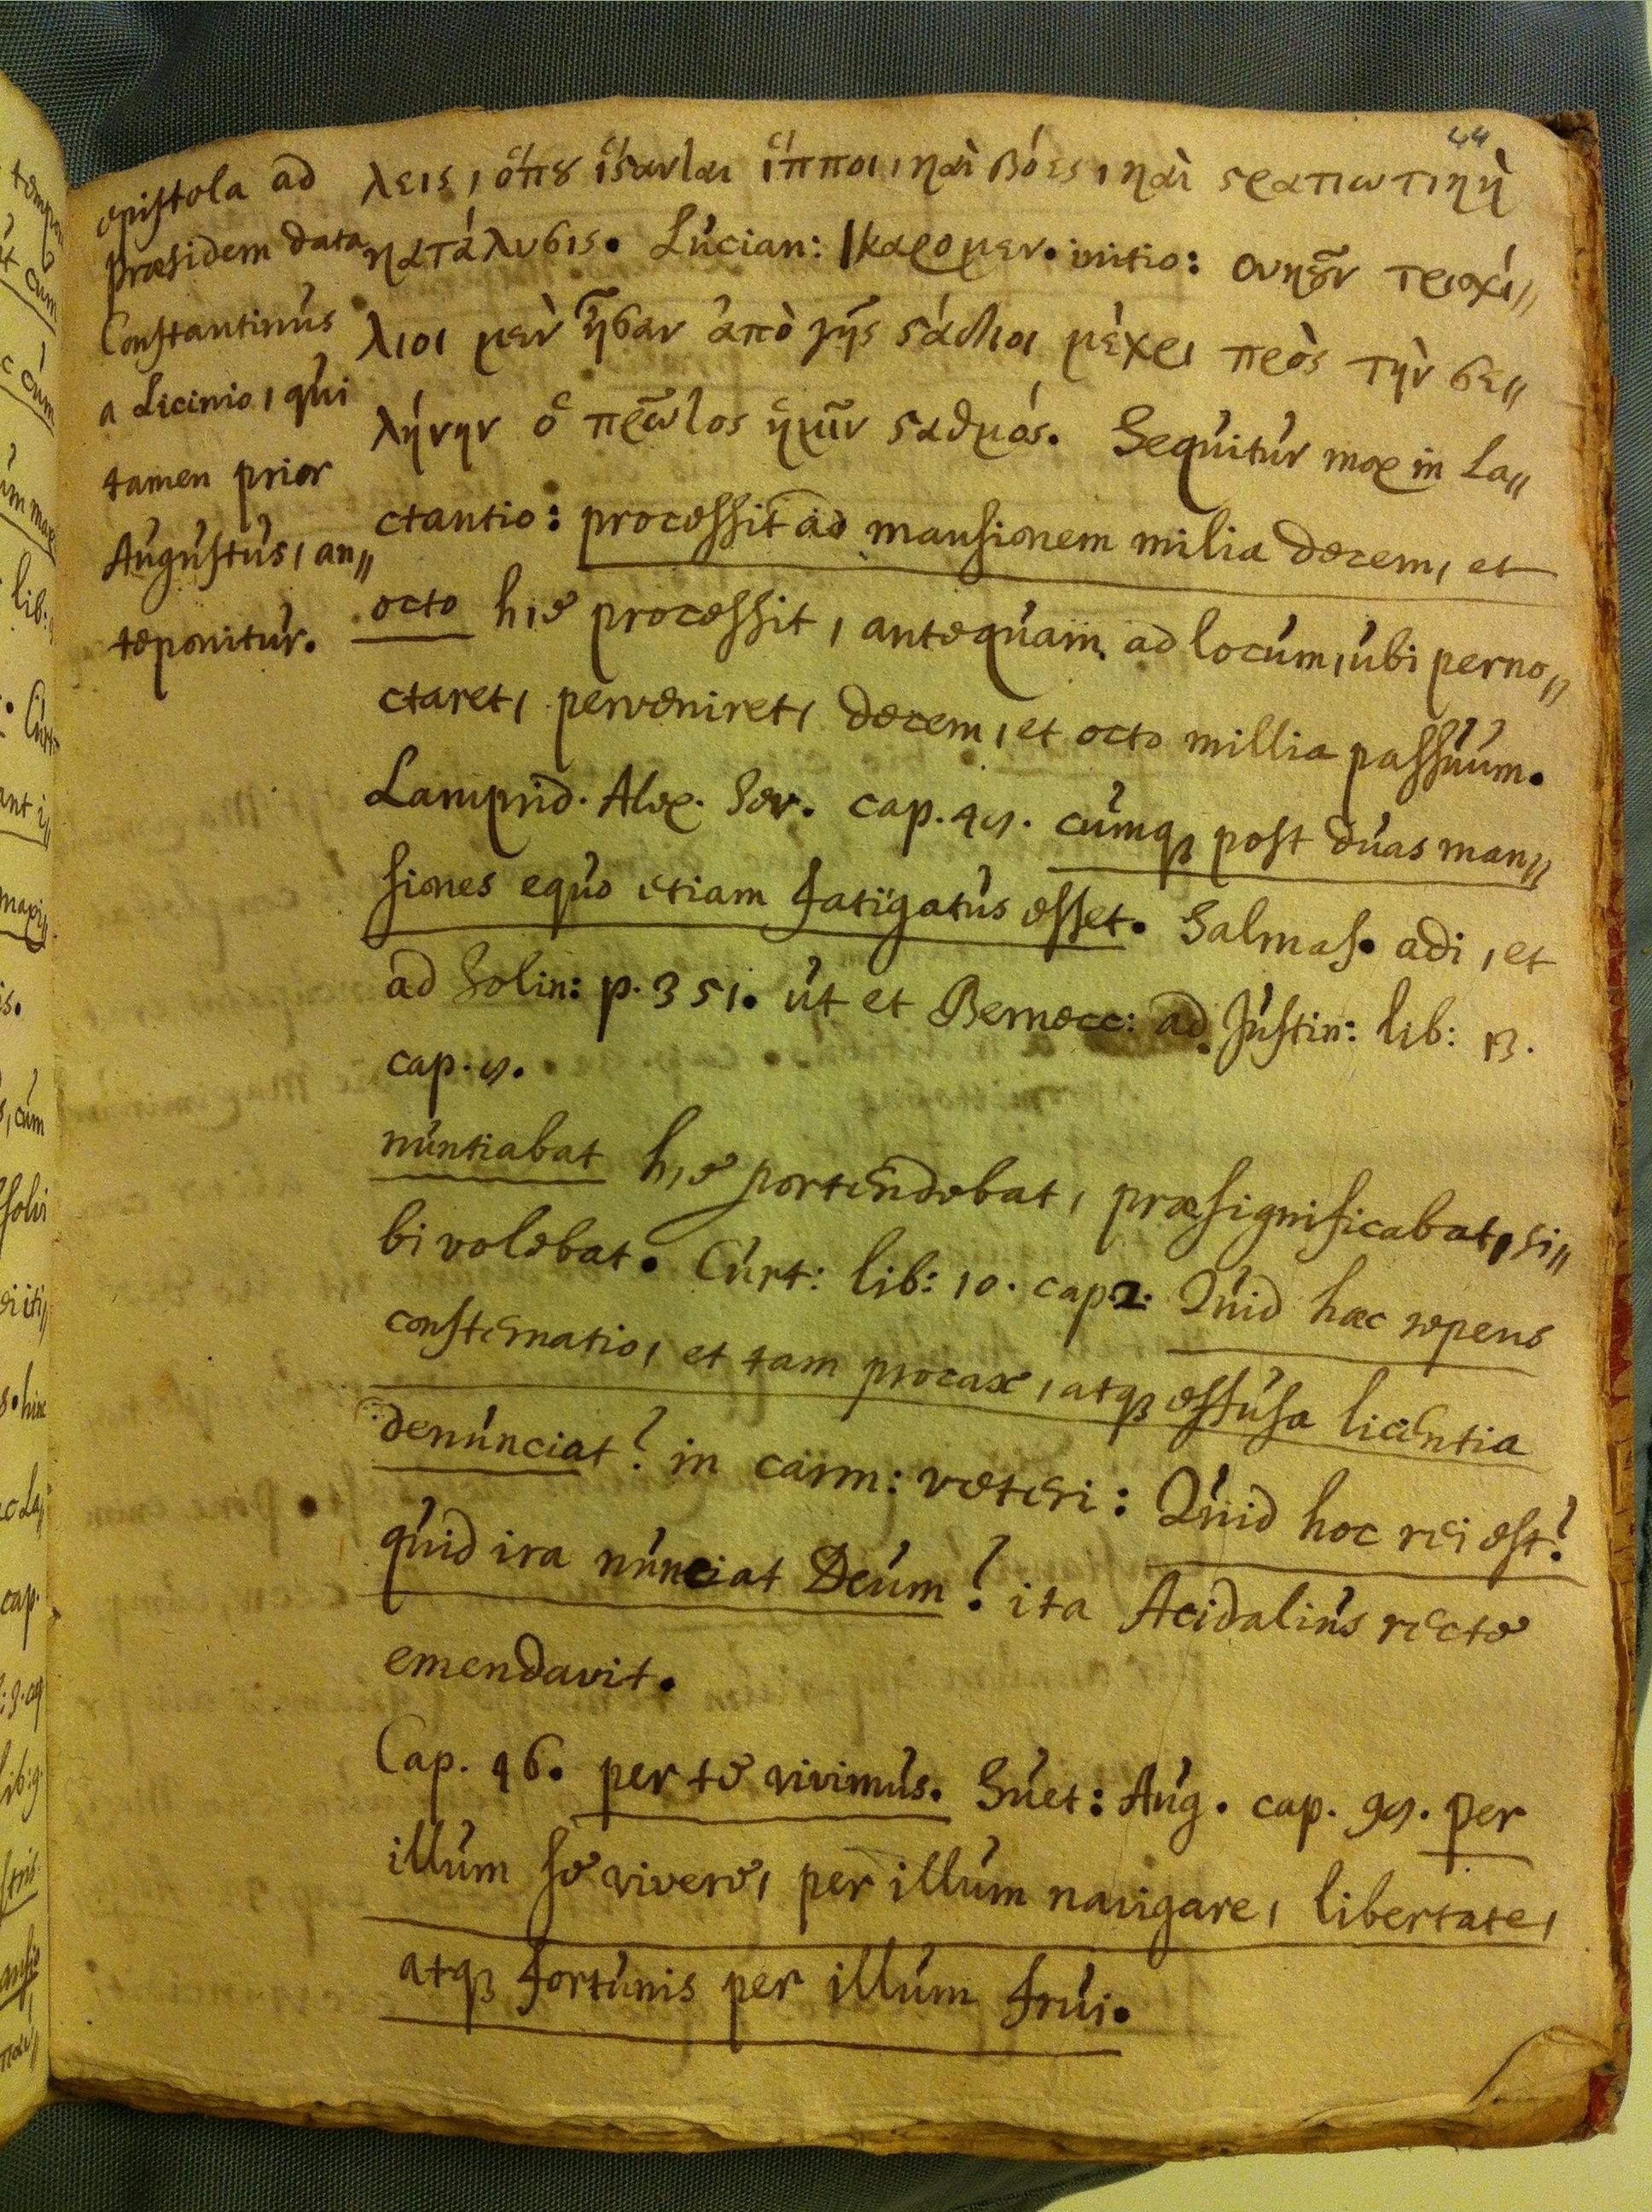 44
epistola ad
præsidem data
Constantinus
a Licinio, qui
tamen prior
Augustus, an〃
teponitur.
λεις, ὅπȣ ἵϛανται ἵπποι, καὶ βόες, καὶ ϛρατιωτικὴ
κατάλυσις. Lucian: Ικαρομεν. initio: ουκοῦν τρισχί〃
λιοι μεν ἦσαν ἀπὸ γῆς ϛάδιοι μέχρι πρὸς τὴν σε〃
λήνην ὁ πρῶτος ἡμῖν ϛαθμός. Sequitur mox in La〃
ctantio: processit ad mansionem milia decem, et
octo hic processit, antequam ad locum, ubi perno〃
ctaret, perveniret, decem, et octo millia passuum.
Lamprid. Alex. Sev. cap. 49. cumqȝ post duas man〃
siones equo etiam fatigatus esset. Salmas. adi, et
ad Solin: p. 351. ut et Bernecc: ad Justin: lib: 13.
cap. 9.
nuntiabat hic portendebat, præsignificabat, si〃
bi volebat. Curt: lib: 10. cap. 2. Quid hæc repens
consternatio, et tam procax, atqȝ effusa licentia
denunciat? in carm: veteri: Quid hoc rei est?
quid ira nunciat Deum? ita Acidalius recte
emendavit.
Cap. 46. per te vivimus. Suet: Aug. cap. 99. per
illum se vivere, per illum navigare, libertate,
atqȝ fortunis per illum frui.